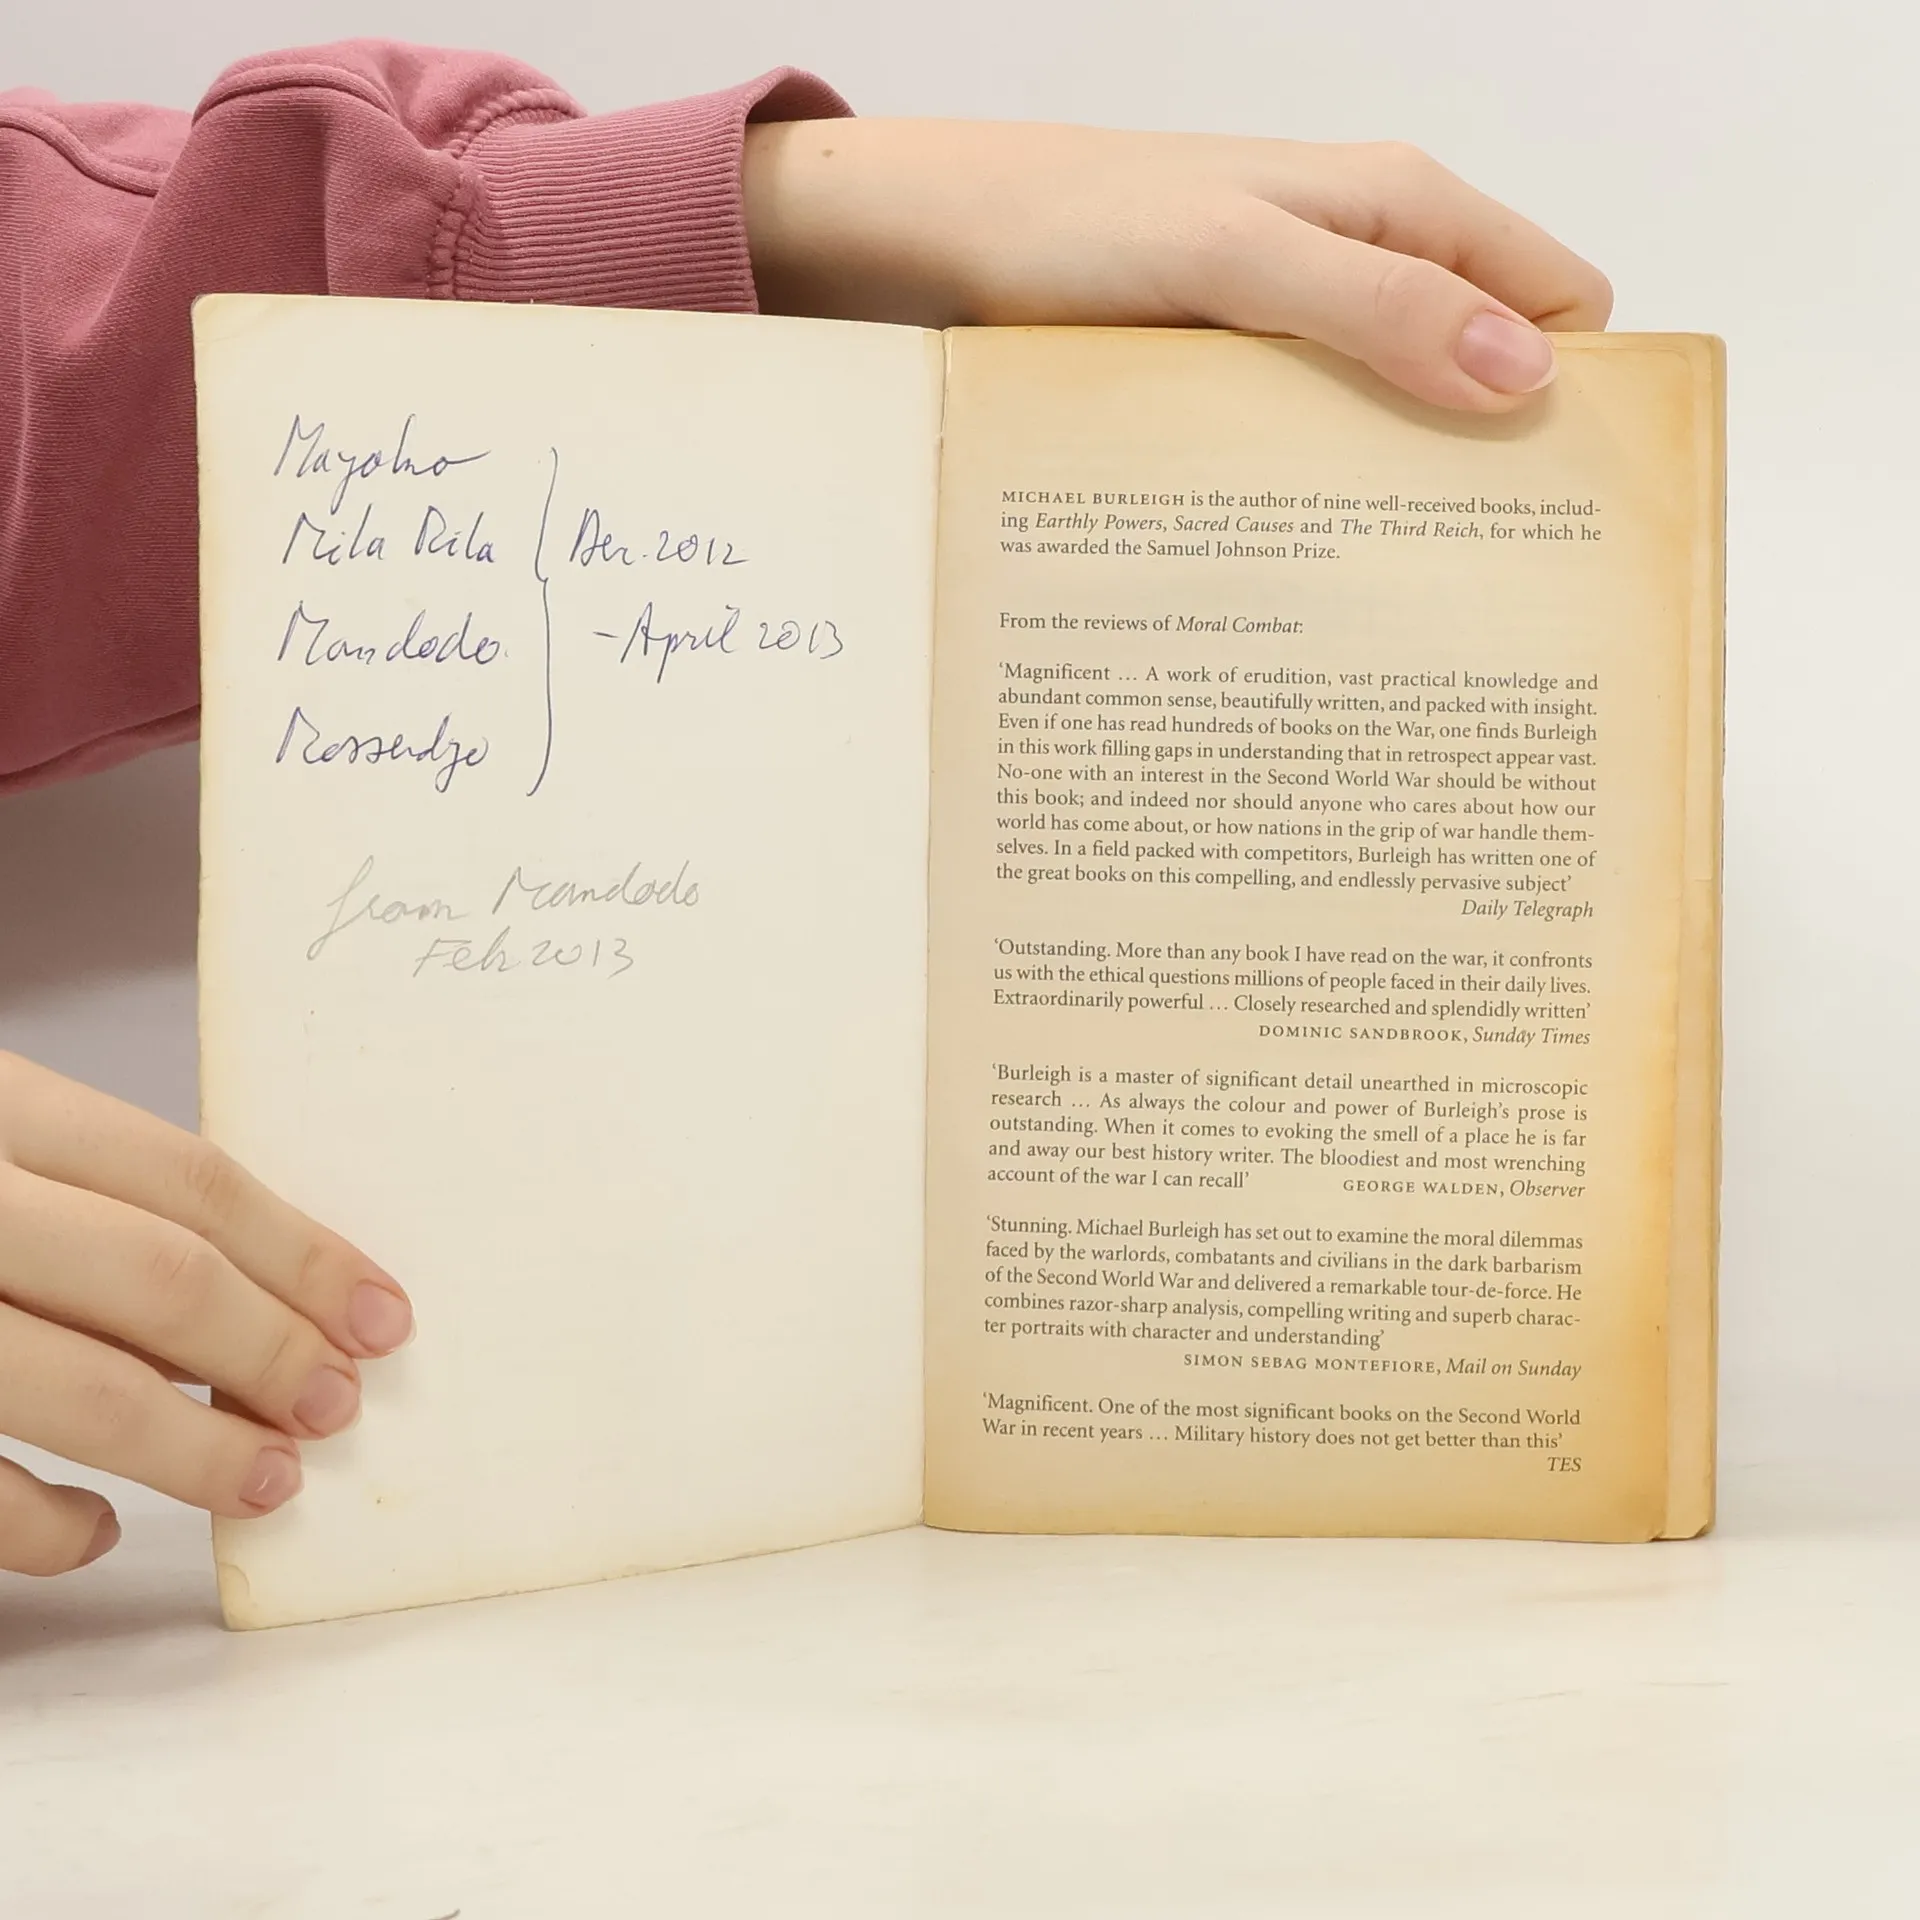 Mila Rila
Dec. 2012
Mandodo.
- April 2013
from Mandodo
Feb 2013
MICHAEL BURLEIGH is the author of nine well-received books, includ-
ing Earthly Powers, Sacred Causes and The Third Reich, for which he
was awarded the Samuel Johnson Prize.
From the reviews of Moral Combat:
‘Magnificent … A work of erudition, vast practical knowledge and
abundant common sense, beautifully written, and packed with insight.
Even if one has read hundreds of books on the War, one finds Burleigh
in this work filling gaps in understanding that in retrospect appear vast.
No-one with an interest in the Second World War should be without
this book; and indeed nor should anyone who cares about how our
world has come about, or how nations in the grip of war handle them-
selves. In a field packed with competitors, Burleigh has written one of
the great books on this compelling, and endlessly pervasive subject’
Daily Telegraph
‘Outstanding. More than any book I have read on the war, it confronts
us with the ethical questions millions of people faced in their daily lives.
Extraordinarily powerful … Closely researched and splendidly written’
DOMINIC SANDBROOK, Sunday Times
‘Burleigh is a master of significant detail unearthed in microscopic
research … As always the colour and power of Burleigh’s prose is
outstanding. When it comes to evoking the smell of a place he is far
and away our best history writer. The bloodiest and most wrenching
account of the war I can recall’ GEORGE WALDEN, Observer
‘Stunning. Michael Burleigh has set out to examine the moral dilemmas
faced by the warlords, combatants and civilians in the dark barbarism
of the Second World War and delivered a remarkable tour-de-force. He
combines razor-sharp analysis, compelling writing and superb charac-
ter portraits with character and understanding’
SIMON SEBAG MONTEFIORE, Mail on Sunday
‘Magnificent. One of the most significant books on the Second World
War in recent years … Military history does not get better than this’
TES